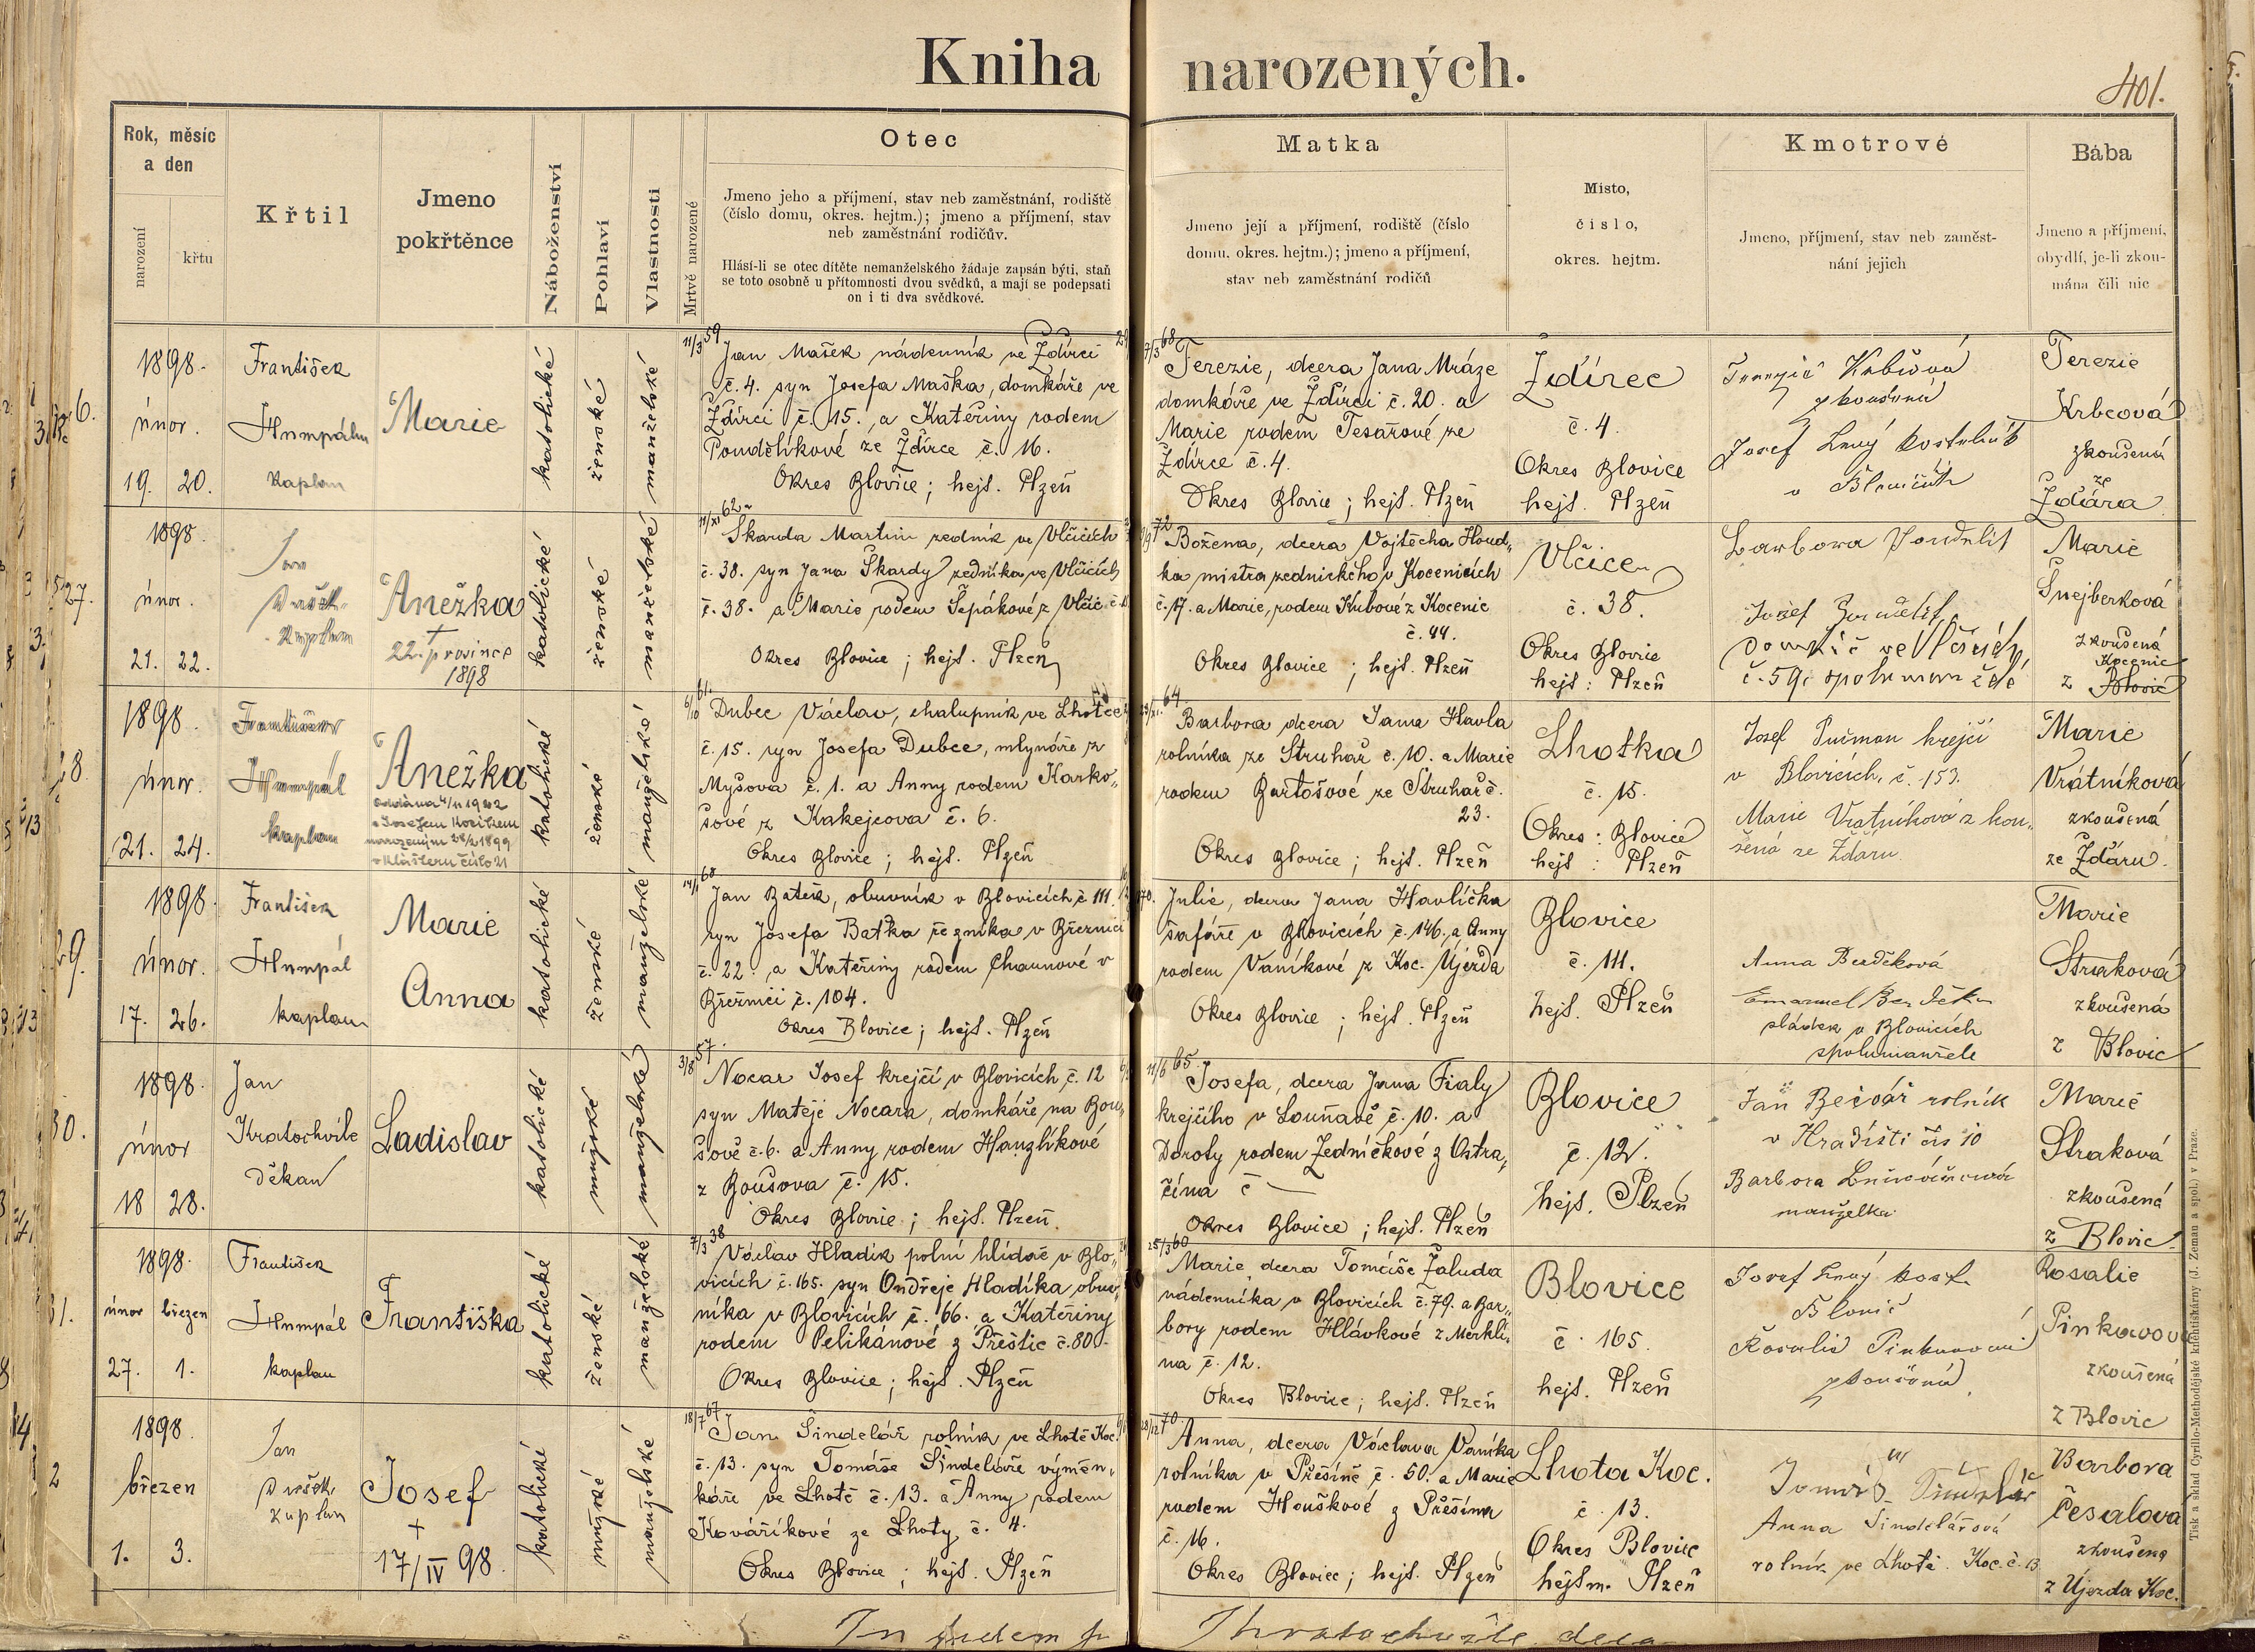 Kniha narozených.
401.
Rok, měsíc
a den
narození
křtu
Křtil
Jmeno
pokřtěnce
Náboženství
Pohlaví
Vlastnosti
Mrtvě narozené
Otec
Jmeno jeho a příjmení, stav neb zaměstnání, rodiště
(číslo domu, okres. hejtm.); jmeno a příjmení, stav
neb zaměstnání rodičův.
Hlásí-li se otec dítěte nemanželského žádaje zapsán býti, staň
se toto osobně u přítomnosti dvou svědků, a mají se podepsati
on i ti dva svědkové.
Matka
Jmeno její a příjmení, rodiště (číslo
domu, okres. hejtm.); jmeno a příjmení,
stav neb zaměstnání rodičů
Místo,
číslo,
okres. hejtm.
Kmotrové
Jmeno, příjmení, stav neb zaměst-
nání jejich
Bába
Jmeno a příjmení,
obydlí, je-li zkou-
mána čili nic
6.
1898.
únor.
19. 20.
František
Humpál
kaplan
Marie
katolické
ženské
manželské
11/3 59
Jan Mašek nádenník ve Ždírci
č. 4. syn Josefa Maška, domkáře ve
Ždírci č. 15. a Kateřiny rodem
Pondělíkové ze Ždírce č. 16.
Okres Blovice; hejt. Plzeň
7/3 68
Terezie, dcera Jana Mráze
domkáře ve Ždírci č. 20. a
Marie rodem Tesařové ze
Ždírce č. 4.
Okres Blovice; hejt. Plzeň
Ždírec
č. 4.
Okres Blovice
hejt. Plzeň
zkoušená
Josef Levý kostelník
v Blovicích
Terezie
Krbcová
zkoušená
ze
Ždára
27.
1898.
únor.
21. 22.
Jan
kaplan
Anežka
†
22. prosince
1898
katolické
ženské
manželské
11/XI 62
Škarda Martin zedník ve Vlčicích
č. 38. syn Jana Škardy zedníka ve Vlčicích
č. 38. a Marie rodem Šepákové z Vlčic
Okres Blovice; hejt. Plzeň
72
Božena, dcera Vojtěcha Houd„
ka mistra zednického v Kocenicích
č. 17. a Marie, rodem Kubové z Kocenic
č. 44.
Okres Blovice; hejt. Plzeň
Vlčice
č. 38.
Okres Blovice
hejt: Plzeň
Barbora Pondělík
Josef Pondělík
ve Vlčicích
č. 59.
Marie
Šnejberková
zkoušená
Kocenic
z Blovic
28.
1898.
únor.
21. 24.
František
Humpál
kaplan
Anežka
s Josefem
narozeným 28/2 1899
v Klášteru číslo 21
katolické
ženské
manželské
6/10 61.
Dubec Václav, chalupník ve Lhotce
č. 15. syn Josefa Dubce, mlynáře z
Myšova č. 1. a Anny rodem Karko„
šové z Kakejcova č. 6.
Okres Blovice; hejt. Plzeň
64
Barbora dcera Jana Havla
rolníka ze Struhař č. 10. a Marie
rodem Bartošové ze Struhař č.
23.
Okres Blovice; hejt. Plzeň
Lhotka
č. 15.
Okres: Blovice
hejt: Plzeň
Josef Pučman krejčí
v Blovicích, č. 153.
Marie Vrátníková zkou„
šená ze Ždáru
Marie
Vrátníková
zkoušená
ze Ždáru.
29.
1898.
únor.
17. 26.
František
Humpál
kaplan
Marie
Anna
katolické
ženské
manželské
14/1 68
Jan Batěk, obuvník v Blovicích č. 111.
syn Josefa Baťka řezníka v Březnici
č. 22. a Kateřiny rodem Chaunové v
Březnici č. 104.
Okres Blovice; hejt. Plzeň
70.
Julie, dcera Jana Havlíčka
šafáře v Blovicích č. 146. a Anny
rodem Vaníkové z Koc. Újezda
Okres Blovice; hejt. Plzeň
Blovice
č. 111.
hejt. Plzeň
Anna Berděková
v Blovicích
spolumanželé
Marie
Straková
zkoušená
z Blovic
30.
1898.
únor
18 28.
Jan
Kratochvíle
děkan
Ladislav
katolické
mužské
manželské
31/8 57
Nocar Josef krejčí v Blovicích č. 12
syn Matěje Nocara, domkáře na Bou„
šově č. 6. a Anny rodem Hanzlíkové
z Boušova č. 15.
Okres Blovice; hejt. Plzeň.
11/6 65
Josefa, dcera Jana Fialy
krejčího v Louňavě č. 10. a
Doroty rodem Zedníčkové z Ostra„
čína č —
Okres Blovice; hejt. Plzeň
Blovice
č. 12.
hejt. Plzeň
rolník
v Hradišti čís 10
Barbora
manželka
Marie
Straková
zkoušená
z Blovic.
31.
1898.
únor březen
27. 1.
František
Humpál
kaplan
Františka
katolické
ženské
manželské
7/3 38
Václav Hladík polní hlídač v Blo„
vicích č. 165. syn Ondřeje Hladíka obuv„
níka v Blovicích č. 66. a Kateřiny
rodem Pelikánové z Přeštic č. 80.
Okres Blovice; hejt. Plzeň
25/3 60
Marie dcera Tomáše Žaluda
nádenníka v Blovicích č. 79. a Bar„
bory rodem Hlávkové z Merklí„
na č. 12.
Okres Blovice; hejt. Plzeň
Blovice
č. 165
hejt. Plzeň
Josef Levý kost.
Blovic
Rosalie Pinkavová
zkoušená
Rosalie
Pinkavová
zkoušená
z Blovic
2
1898.
březen
1. 3.
Jan
kaplan
Josef
+
17/IV 98.
katolické
mužské
manželské
18/7 67
Jan Šindelář rolník ve Lhotě Koc.
č. 13. syn Tomáše Šindeláře výměn„
káře ve Lhotě č. 13. a Anny rodem
Kovaříkové ze Lhoty č. 4.
Okres Blovice; hejt. Plzeň
28/12 70.
Anna, dcera Václava Vaníka
rolníka v Přešíně č. 50. a Marie
rodem Houškové z Přešína
č. 16.
Okres Blovice; hejt. Plzeň
Lhota Koc.
č. 13.
Okres Blovice
hejtm. Plzeň
Tomáš Šindelář
Anna Šindelářová
rolník ve Lhotě Koc. č. 13
Barbora
Česalová
zkoušená
z Újezda Koc.
Tisk a sklad Cyrillo-Methodějské knihtiskárny (J. Zeman a spol.) v Praze.